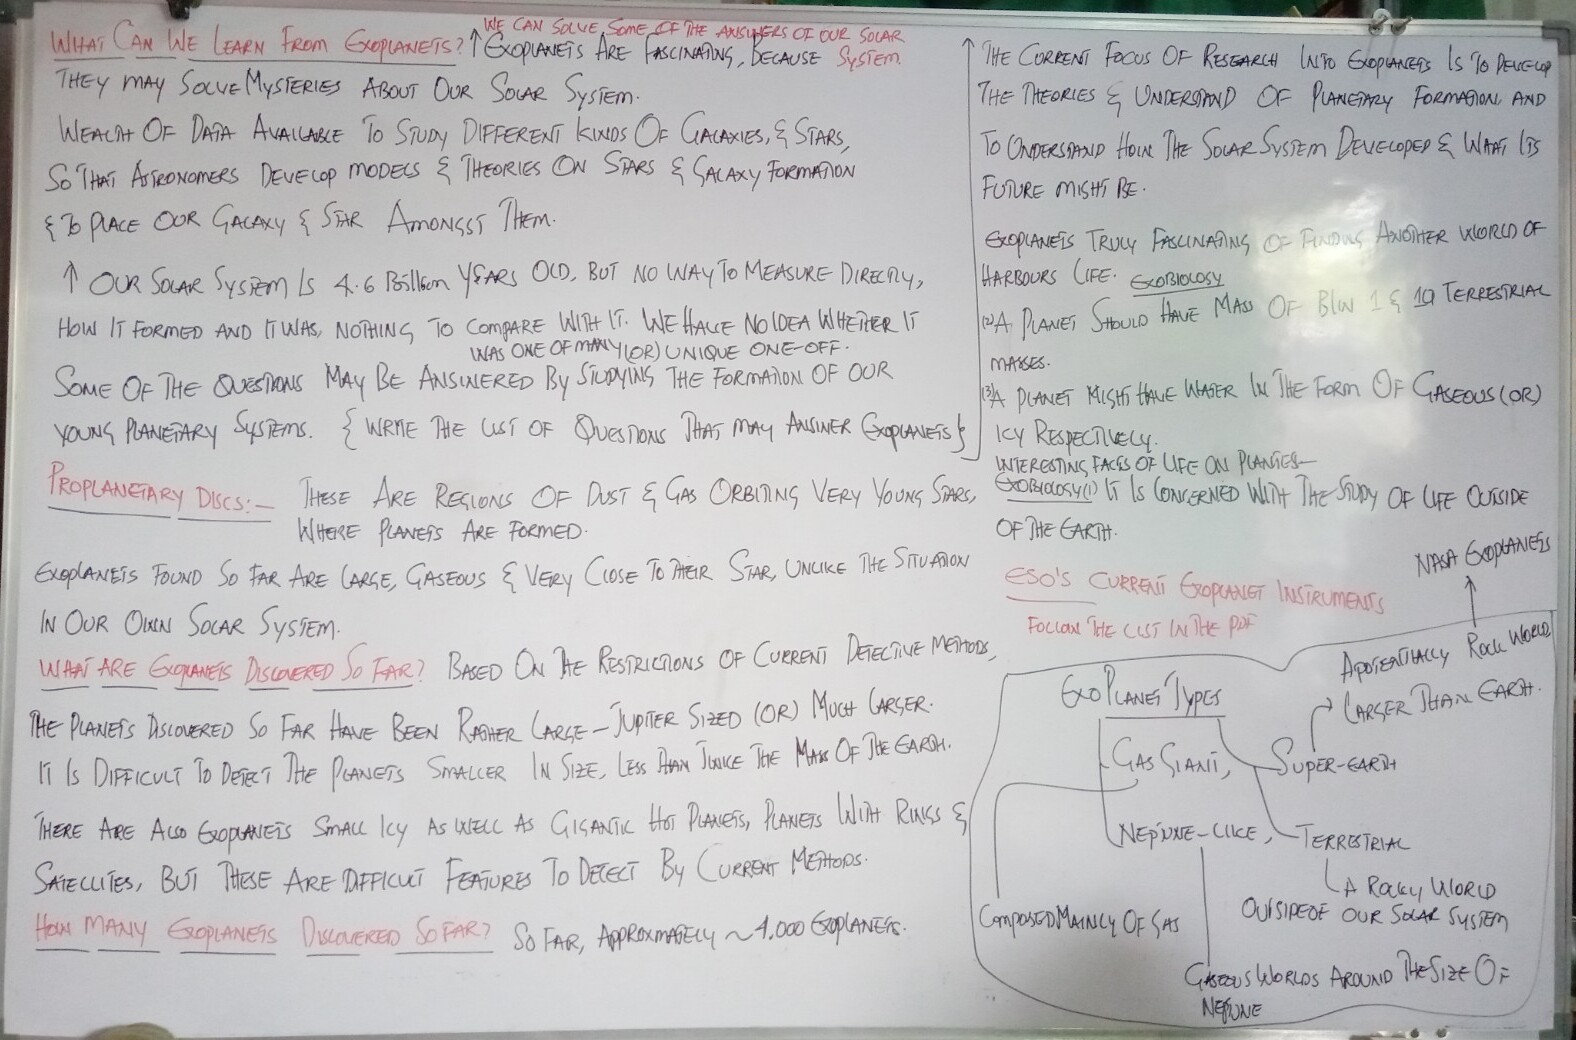 WHAT CAN WE LEARN FROM EXOPLANETS? ↑ EXOPLANETS ARE FASCINATING, BECAUSE
WE CAN SOLVE SOME OF THE ANSWERS OF OUR SOLAR
SYSTEM
THEY MAY SOLVE MYSTERIES ABOUT OUR SOLAR SYSTEM.
WEALTH OF DATA AVAILABLE TO STUDY DIFFERENT KINDS OF GALAXIES, & STARS,
SO THAT ASTRONOMERS DEVELOP MODELS & THEORIES ON STARS & GALAXY FORMATION
& TO PLACE OUR GALAXY & STAR AMONGST THEM.
↑ OUR SOLAR SYSTEM IS 4.6 Billion YEARS OLD, BUT NO WAY TO MEASURE DIRECTLY,
HOW IT FORMED AND IT WAS, NOTHING TO COMPARE WITH IT. WE HAVE NO IDEA WHETHER IT
WAS ONE OF MANY (OR) UNIQUE ONE-OFF.
SOME OF THE QUESTIONS MAY BE ANSWERED BY STUDYING THE FORMATION OF OUR
YOUNG PLANETARY SYSTEMS. { WRITE THE LIST OF QUESTIONS THAT MAY ANSWER EXOPLANETS }
PROPLANETARY DISCS:- THESE ARE REGIONS OF DUST & GAS ORBITING VERY YOUNG STARS,
WHERE PLANETS ARE FORMED.
EXOPLANETS FOUND SO FAR ARE LARGE, GASEOUS & VERY CLOSE TO THEIR STAR, UNLIKE THE SITUATION
IN OUR OWN SOLAR SYSTEM.
WHAT ARE EXOPLANETS DISCOVERED SO FAR? BASED ON THE RESTRICTIONS OF CURRENT DETECTIVE METHODS,
THE PLANETS DISCOVERED SO FAR HAVE BEEN RATHER LARGE - JUPITER SIZED (OR) MUCH LARGER.
IT IS DIFFICULT TO DETECT THE PLANETS SMALLER IN SIZE, LESS THAN TWICE THE MASS OF THE EARTH.
THERE ARE ALSO EXOPLANETS SMALL ICY AS WELL AS GIGANTIC HOT PLANETS, PLANETS WITH RINGS &
SATELLITES, BUT THESE ARE DIFFICULT FEATURES TO DETECT BY CURRENT METHODS.
HOW MANY EXOPLANETS DISCOVERED SO FAR? SO FAR, APPROXMATELY ~ 4,000 EXOPLANETS.
↑ THE CURRENT FOCUS OF RESEARCH INTO EXOPLANETS IS TO DEVELOP
THE THEORIES & UNDERSTAND OF PLANETARY FORMATION, AND
TO UNDERSTAND HOW THE SOLAR SYSTEM DEVELOPED & WHAT ITS
FUTURE MIGHT BE.
EXOPLANETS TRULY FASCINATING OF FINDING ANOTHER WORLD OF
HARBOURS LIFE. EXOBIOLOGY
(2) A PLANET SHOULD HAVE MASS OF B/W 1 & 10 TERRESTRIAL
MASSES.
(3) A PLANET MIGHT HAVE WATER IN THE FORM OF GASEOUS (OR)
ICY RESPECTIVELY.
INTERESTING FACTS OF LIFE ON PLANTES-
EXOBIOLOGY (1) IT IS CONCERNED WITH THE STUDY OF LIFE OUTSIDE
OF THE EARTH.
ESO'S CURRENT EXOPLANET INSTRUMENTS
FOLLOW THE LIST IN THE PDF
NASA EXOPLANETS
EXOPLANET TYPES
A POTENTIALLY ROCK WORLD
LARGER THAN EARTH.
GAS GIANT,
SUPER-EARTH
NEPTUNE-LIKE,
TERRESTRIAL
A ROCKY WORLD
OUTSIDE OF OUR SOLAR SYSTEM
COMPOSED MAINLY OF GAS
GASEOUS WORLDS AROUND THE SIZE OF
NEPTUNE